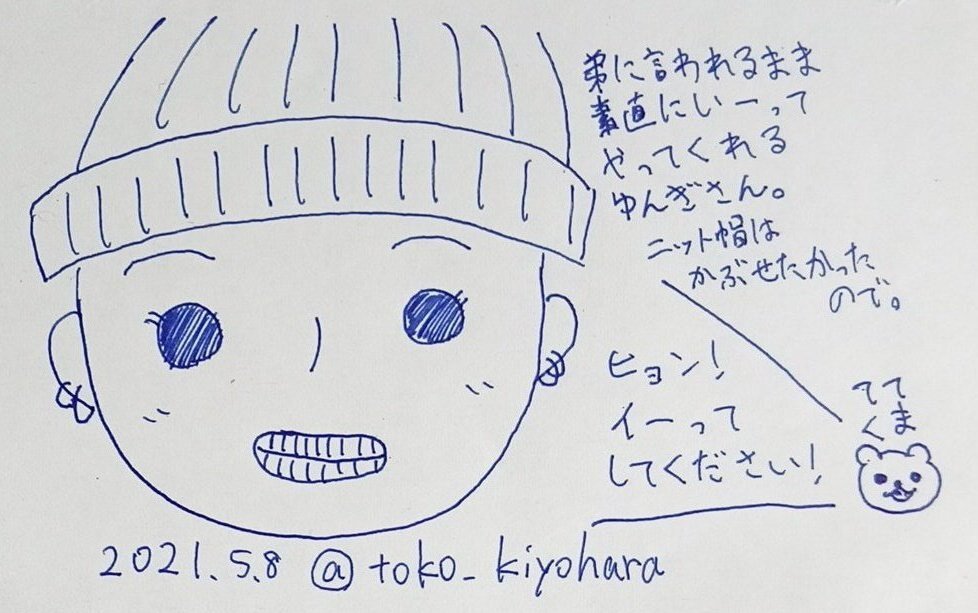 弟に言われるまま
素直にいーって
やってくれる
ゆんぎさん。
ニット帽は
かぶせたかった
ので。
ヒョン!
イーって
してください!
てて
くま
2021.5.8 @toko_kiyohara